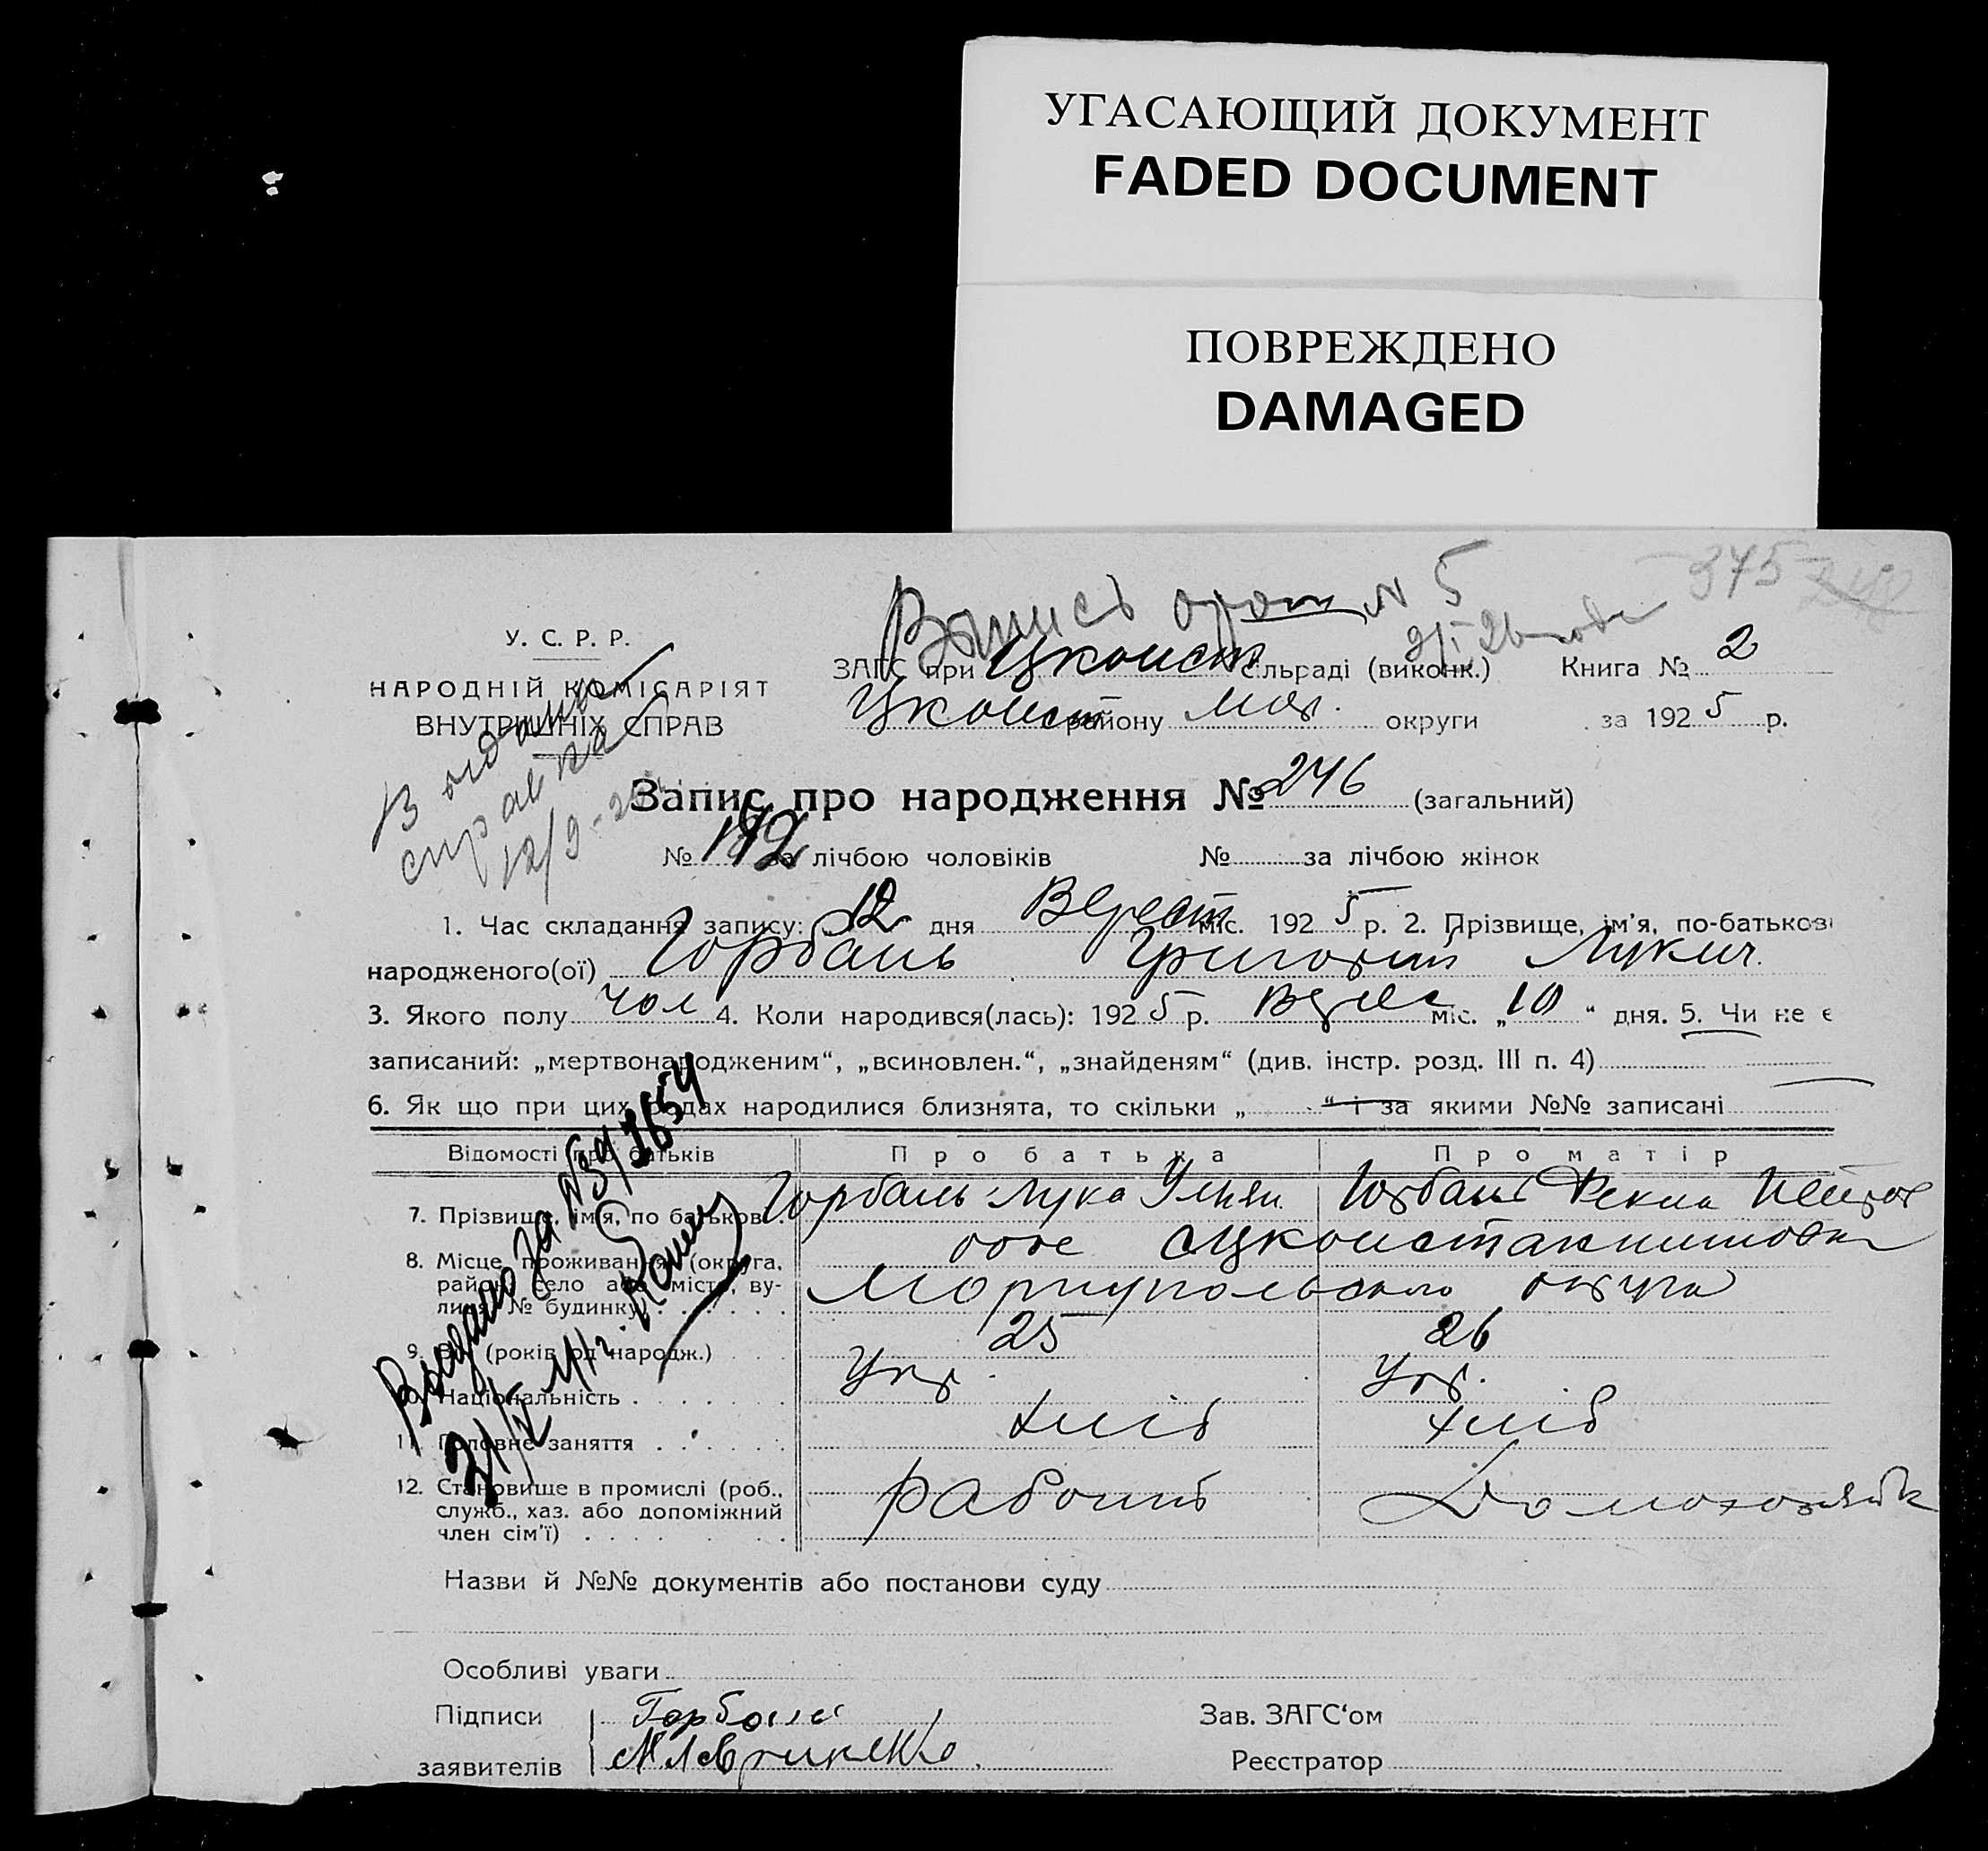 УГАСАЮЩИЙ ДОКУМЕНТ
FADED DOCUMENT
ПОВРЕЖДЕНО
DAMAGED
375
№ 5
У. С. Р. Р.
НАРОДНІЙ КОМІСАРІЯТ
ВНУТРІШНІХ СПРАВ
ЗАГС при Цконст сільраді (виконк.) Книга № 2
Цконст району Мар. округи за 1925 р.
Выдана
справка
12/9-25
Запис про народження № 246 (загальний)
№ 142 за лічбою чоловіків № за лічбою жінок
1. Час складання запису: 12 дня Верест міс. 1925 р. 2. Прізвище, ім'я, по-батькові
народженого(ої) Горбань Григорий Лукич.
3. Якого полу чол 4. Коли народився(лась): 1925 р. Верес міс. „10“ дня. 5. Чи не є
записаний: „мертвонародженим“, „всиновлен.“, „знайденям“ (див. інстр. розд. III п. 4)
6. Як що при цих родах народилися близнята, то скільки „ “ і за якими №№ записані
Відомості про батьків Про батька Про матір
7. Прізвище, ім'я, по батькові Горбань Лука Ульян. Горбань Фекла Петров
8. Місце проживання (округа, район, село або місто, вулиця, № будинку) Цконстантиновка
Мариупольского округа
9. Вік (років од народж.) 25 26
10. Національність Укр. Укр.
11. Головне заняття хліб хліб
12. Становище в промислі (роб., служб., хаз. або допоміжний член сім'ї) рабочий Домохозяйк
Назви й №№ документів або постанови суду
Особливі уваги
Підписи Горбань Зав. ЗАГС'ом
заявителів Реєстратор